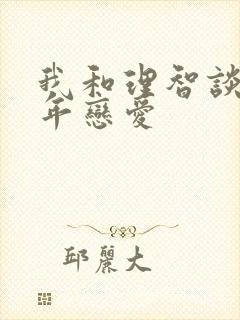 我和理智談
年戀愛
邱麗大